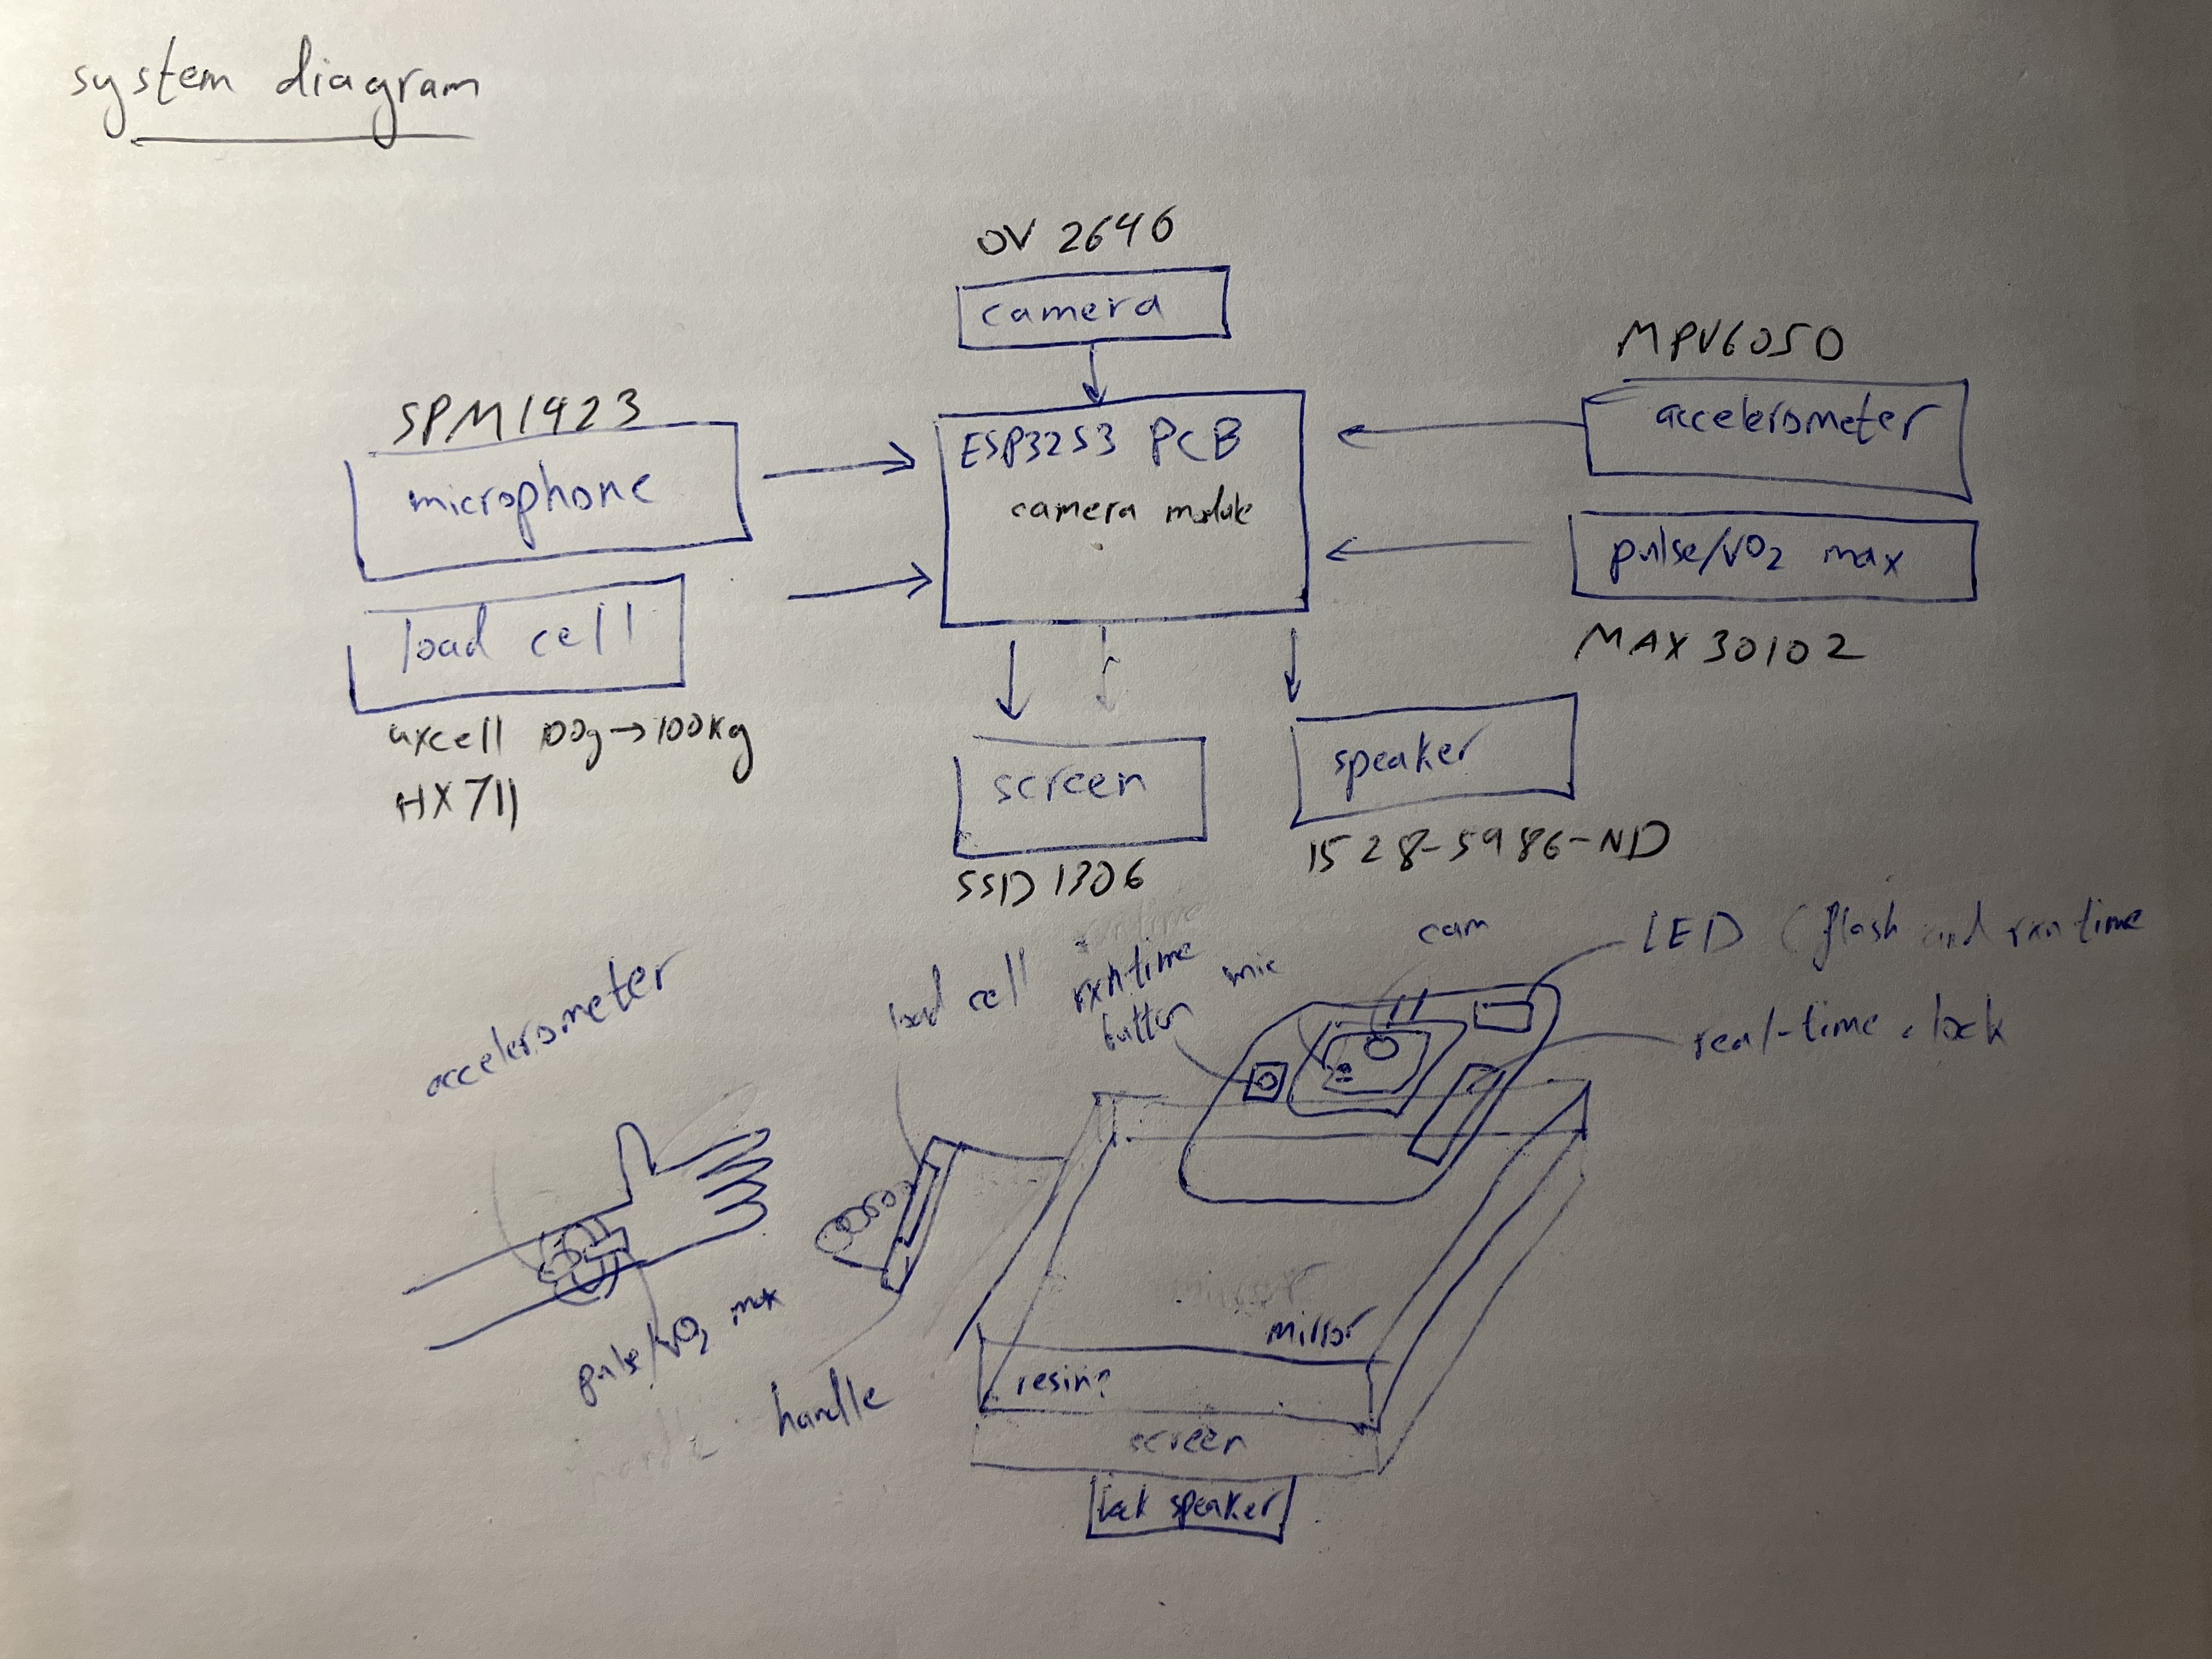 system diagram
OV 2640
camera
MPU6050
accelerometer
SPM1423
microphone
ESP32S3 PCB
camera module
pulse/VO2 max
MAX30102
load cell
uxcell 100g→100kg
HX711
screen
SSD1306
speaker
1528-5986-ND
cam
LED (flash and rxn time
load cell
rxn time
button
mic
real-time clock
accelerometer
pulse/VO2 max
handle
mirror
resin?
screen
speaker